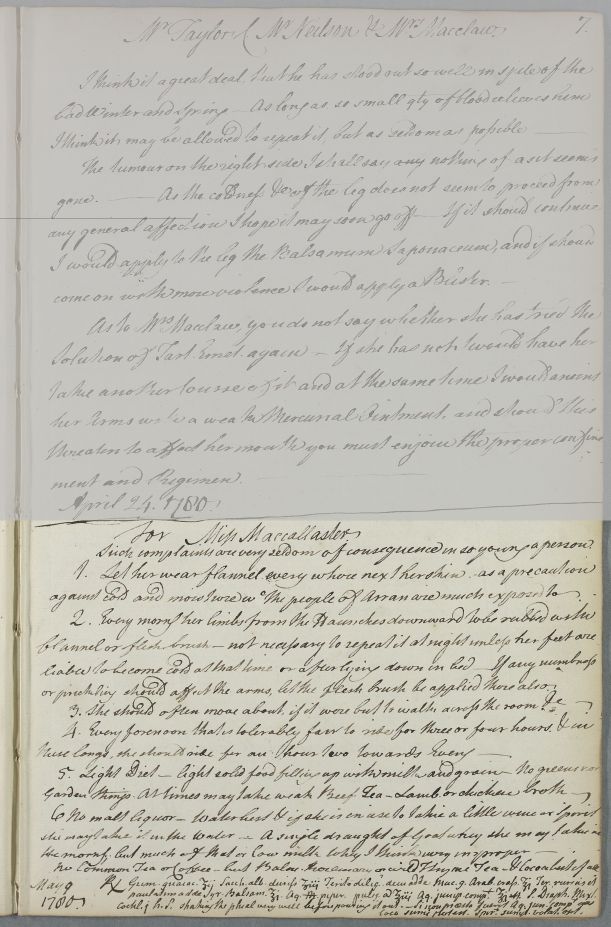 Mr Taylor (Mr Neilson & Mrs Macclaw. 7.
I think it a great deal that he has stood out so well in spite of the
bad Winter and Spring — As long as so small qty of blood relieves him
I think it may be allowed to repeat it, but as seldom as possible —
The tumour on the right side I shall say nothing of as it seems
gone. — As the coldness &c of the leg does not seem to proceed from
any general affection I hope it may soon go off — If it should continue
I would apply to the leg the Balsamum Saponaceum, and if should
come on with more violence I would apply a Blister. —
As to Mrs Macclaw, you do not say whether she has tried the
Solution of Tart. Emet. again — If she has not I would have her
take another Course of it and at the same time I would anoint
her Arms with a weak Mercurial Ointment, and should this
threaten to affect her mouth you must enjoin the proper confine
ment and Regimen. —
April 24. 1780.
For Miss Maccallaster
Such complaints are very seldom of consequence in so young a person.
1. Let her wear flannel every where next her skin as a precaution
against cold and moisture wc. the people of Arran are much exposed to
2. Every morng her limbs from the Haunches downward to be rubbed with
flannel or flesh brush — not necessary to repeat it at night unless her feet are
liable to become cold at that time or after lying down in bed — If any numbness
or prickling should affect the arms, let the flesh brush be applied there also
3. She should often move about, if it were but to walk across the room &c
4. Every forenoon that is tolerably fair to ride for three or four hours, & in
these long days, she should ride for an hour or two towards Eveng —
5. Light Diet — light solid food filling up with milk and grain — No greens or
Garden things. At times may take weak Beef Tea — Lamb or chicken broth —
6 No malt liquor — Water best & if she is in use to take a little wine or Spirit
she may take it in the Water — A single draught of Goat whey she may take in
the morng. but much of that or Cow milk Whey I think very improper —
No Common Tea or Coffee — but Balm, Rosemary or wild Thyme Tea — & Cocoa best of all
May 9
1780
℞ Gum. guaiac. Sacch. alb.